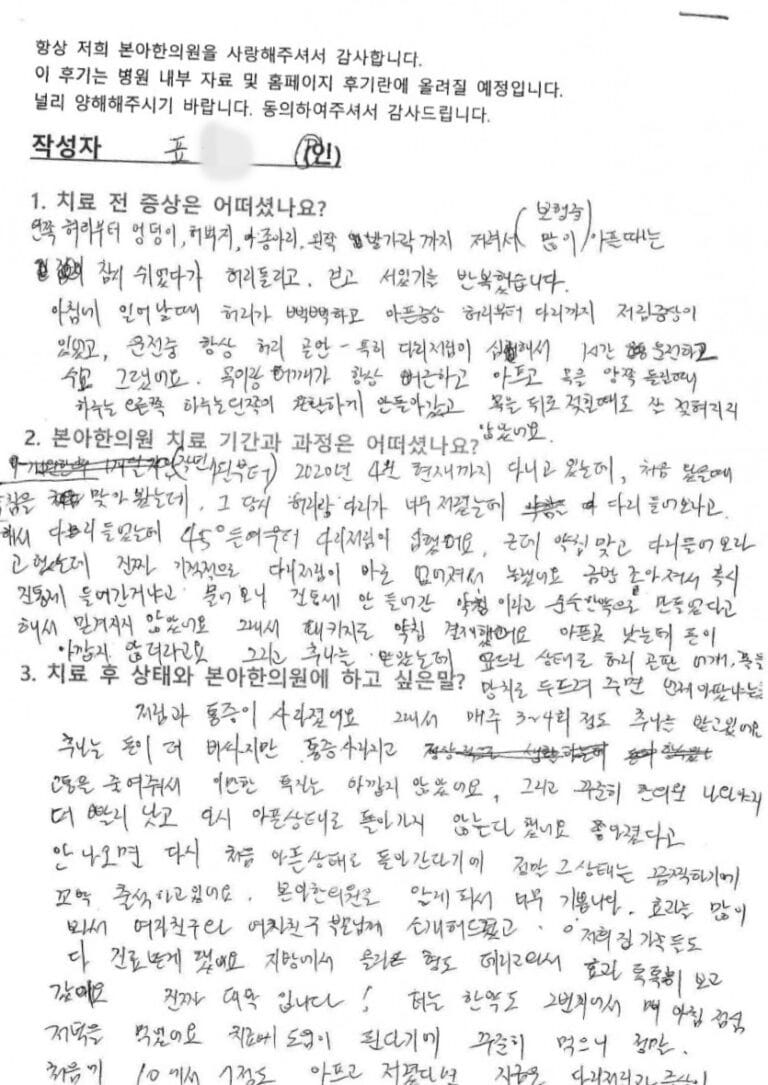 항상 저희 본아한의원을 사랑해주셔서 감사합니다.
이 후기는 병원 내부 자료 및 홈페이지 후기란에 올려질 예정입니다.
널리 양해해주시기 바랍니다. 동의하여주셔서 감사드립니다.
작성자 표 (인)
1. 치료 전 증상은 어떠셨나요?
왼쪽 허리부터 엉덩이, 허벅지, 종아리, 왼쪽 발가락까지 저려서 (많이) 아픈때는
참지 쉬었다가 허리돌리고, 걷고 서있기를 반복했습니다.
아침에 일어날때 허리가 뻑뻑하고 아픈증상 허리부터 다리까지 저림증상이
있었고, 운전중 항상 허리 골반 - 특히 다리저림이 심해서 1시간 운전하고
쉬고 그랬어요. 목이랑 어깨가 항상 뻐근하고 아프고 목을 양쪽 돌릴때
하나는 오른쪽 하나는 왼쪽이 완만하게 안돌아갔고 목을 뒤로 젖힐때도 잘 젖혀지지
않았어요.
2. 본아한의원 치료 기간과 과정은 어떠셨나요?
(작년 부터) 2020년 4월 현재까지 다니고 있는데, 처음 왔을때
침을 맞아 봤는데, 그 당시 허리랑 다리가 너무 저렸는데 다리 들어보라고
해서 다리 들었는데 45°들어부터 다리저림이 심했어요, 근데 약침 맞고 다리들어 보라
고 했는데 진짜 기적적으로 다리저림이 바로 없어져서 놀랬어요 금방 좋아져서 혹시
진통제 들어간거냐고 물어 보니 진통제 안 들어간 약침이라고 순수한약으로 만들었다고
해서 믿겨지지 않았어요 그래서 패키지로 약침 결제했어요 아픈곳 낫는데 돈이
아깝지 않더라고요 그리고 추나는 받았는데 엎드린 상태로 허리 골반 어깨, 목을
3. 치료 후 상태와 본아한의원에 하고 싶은말?
망치로 두드려 주면
저림과 통증이 사라졌어요 그래서 매주 3~4회 정도 추나는 받고있어요
추나는 돈이 더 비싸지만 통증사라지고
고통을 줄여줘서 이만한 투자는 아깝지 않았어요, 그리고 꾸준히 한의원 나와야지
더 빨리 낫고 다시 아픈상태로 돌아가지 않는다 했어요 좋아졌다고
안 나오면 다시 처음 아픈상태로 돌아간다기에 정말 그 상태는 끔찍하기에
꼬박 출석하고있어요. 본아한의원을 알게 되서 너무 기쁩니다. 효과는 많이
봐서 여자친구와 여자친구 부모님께 소개해드렸고 저희 집 가족들도
다 진료받게 됐어요 지방에서 올라온 형도 데리고와서 효과 톡톡히 보고
갔어요 진짜 대박 입니다! 저는 한약도 2번지어서 매 아침 점심
저녁을 먹었어요 치료에 도움이 된다기에 꾸준히 먹으니 정말.
처음에 10에서 정도 아프고 저렸다면 지금은 다리저리는 증상이